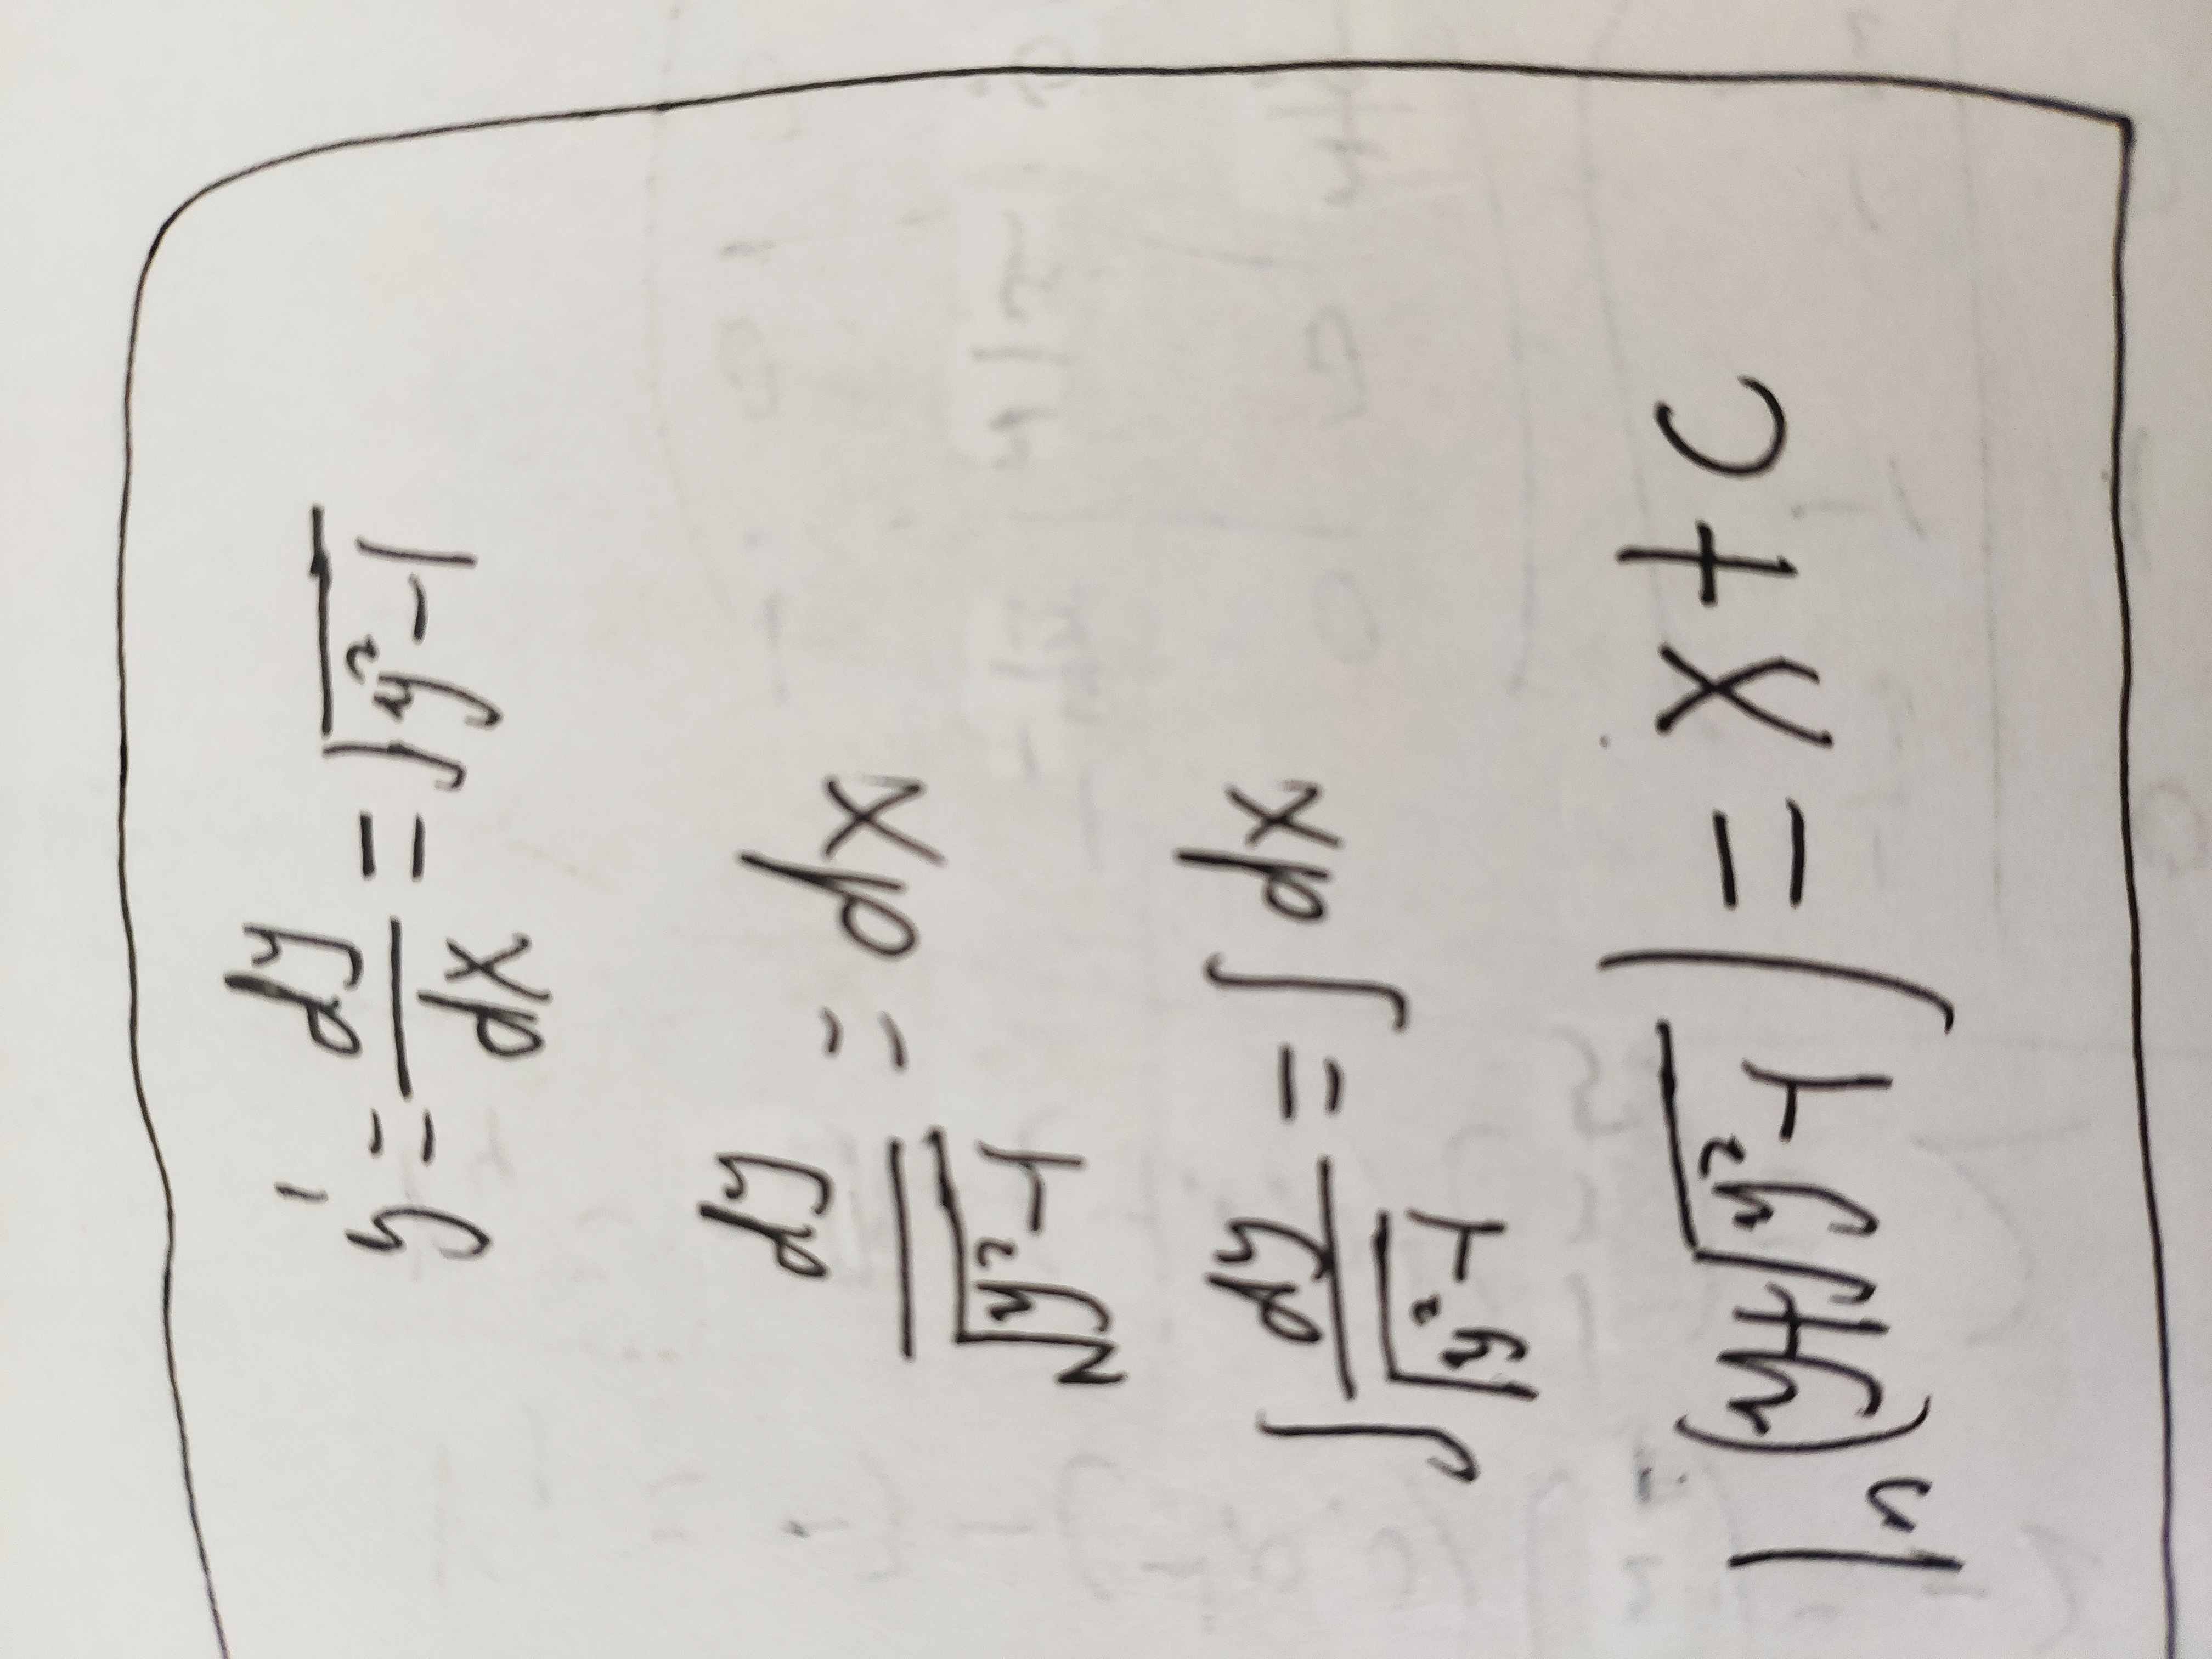 y' = dy/dx = √(y²-1)
dy/√(y²-1) = dx
∫ dy/√(y²-1) = ∫ dx
ln(y+√(y²-1)) = x + c